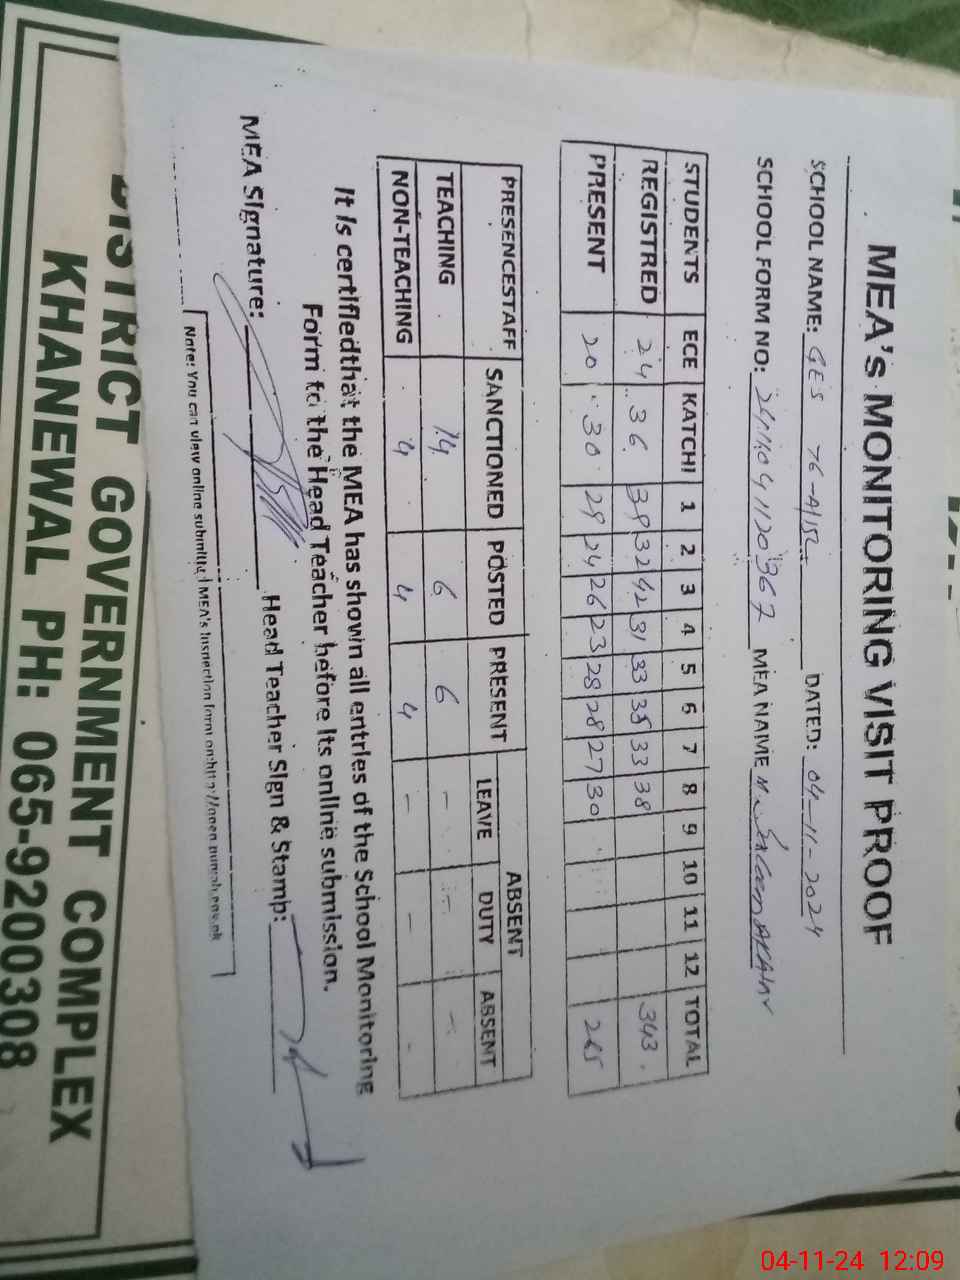 MEA's MONITORING VISIT PROOF
SCHOOL NAME: GES 76-A/15L DATED: 04-11-2024
SCHOOL FORM NO: MEA NAME
STUDENTS ECE KATCHI 1 2 3 4 5 6 7 8 9 10 11 12 TOTAL
REGISTRED 24 36 39 32 42 31 33 35 33 38 343
PRESENT 20 30 29 24 26 23 28 28 27 30 265
PRESENCESTAFF SANCTIONED POSTED PRESENT ABSENT
LEAVE DUTY ABSENT
TEACHING 14 6 6 - - -
NON-TEACHING 4 4 4 - - -
It is certifiedthat the MEA has shown all entries of the School Monitoring
Form to the Head Teacher before its online submission.
MEA Signature: Head Teacher Sign & Stamp:
Note: You can view online submitted MEA's Inspection form on http://open.punjab.gov.pk
DISTRICT GOVERNMENT COMPLEX
KHANEWAL PH: 065-9200308
04-11-24 12:09